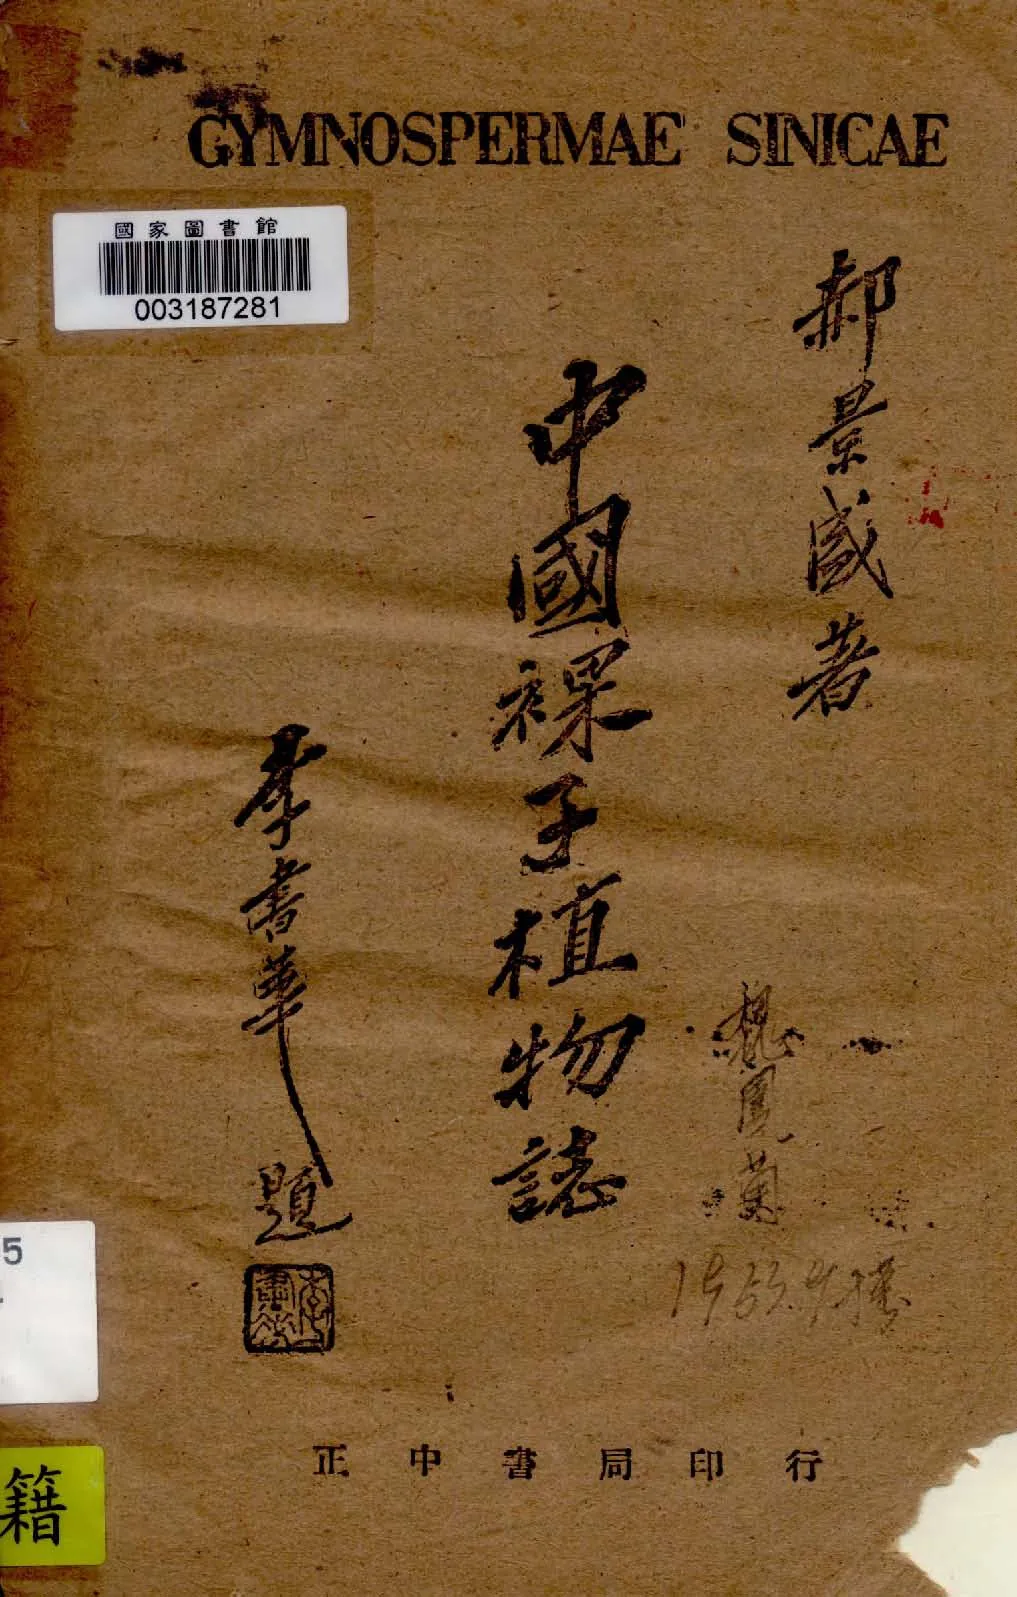 GYMNOSPERMAE SINICAE
國家圖書館
003187281
郝景盛著
中國裸子植物誌
李書華題
5
籍
正中書局印行